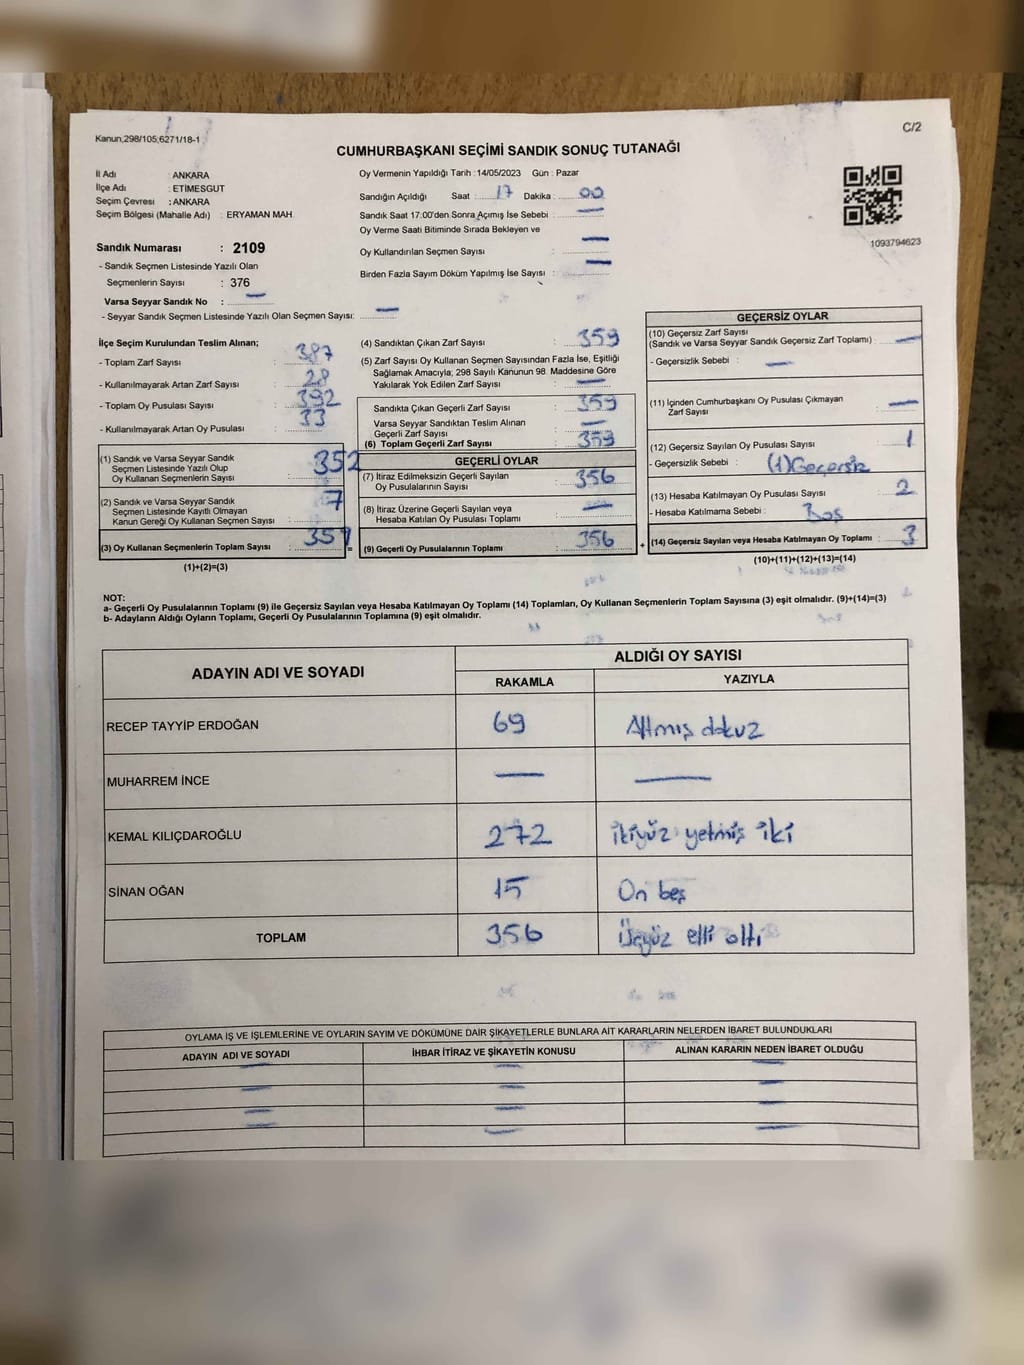 Kanun,298/105,6271/18-1
C/2
CUMHURBAŞKANI SEÇİMİ SANDIK SONUÇ TUTANAĞI
İl Adı : ANKARA
İlçe Adı : ETİMESGUT
Seçim Çevresi : ANKARA
Seçim Bölgesi (Mahalle Adı) : ERYAMAN MAH.
Sandık Numarası : 2109
- Sandık Seçmen Listesinde Yazılı Olan
Seçmenlerin Sayısı : 376
Varsa Seyyar Sandık No : —
- Seyyar Sandık Seçmen Listesinde Yazılı Olan Seçmen Sayısı: —
Oy Vermenin Yapıldığı Tarih : 14/05/2023 Gün : Pazar
Sandığın Açıldığı Saat : 17 Dakika : 00
Sandık Saat 17:00'den Sonra Açımış İse Sebebi : —
Oy Verme Saati Bitiminde Sırada Bekleyen ve
Oy Kullandırılan Seçmen Sayısı : —
Birden Fazla Sayım Döküm Yapılmış İse Sayısı : —
1093794623
İlçe Seçim Kurulundan Teslim Alınan;
- Toplam Zarf Sayısı : 387
- Kullanılmayarak Artan Zarf Sayısı : 28
- Toplam Oy Pusulası Sayısı : 392
- Kullanılmayarak Artan Oy Pusulası : 33
(1) Sandık ve Varsa Seyyar Sandık
Seçmen Listesinde Yazılı Olup
Oy Kullanan Seçmenlerin Sayısı : 352
(2) Sandık ve Varsa Seyyar Sandık
Seçmen Listesinde Kayıtlı Olmayan
Kanun Gereği Oy Kullanan Seçmen Sayısı : 7
(3) Oy Kullanan Seçmenlerin Toplam Sayısı : 359 =
(1)+(2)=(3)
(4) Sandıktan Çıkan Zarf Sayısı : 359
(5) Zarf Sayısı Oy Kullanan Seçmen Sayısından Fazla İse, Eşitliği
Sağlamak Amacıyla; 298 Sayılı Kanunun 98. Maddesine Göre
Yakılarak Yok Edilen Zarf Sayısı : —
Sandıkta Çıkan Geçerli Zarf Sayısı : 359
Varsa Seyyar Sandıktan Teslim Alınan
Geçerli Zarf Sayısı : —
(6) Toplam Geçerli Zarf Sayısı : 359
GEÇERLİ OYLAR
(7) İtiraz Edilmeksizin Geçerli Sayılan
Oy Pusulalarının Sayısı : 356
(8) İtiraz Üzerine Geçerli Sayılan veya
Hesaba Katılan Oy Pusulası Toplamı : —
(9) Geçerli Oy Pusulalarının Toplamı : 356 +
GEÇERSİZ OYLAR
(10) Geçersiz Zarf Sayısı
(Sandık ve Varsa Seyyar Sandık Geçersiz Zarf Toplamı) : —
- Geçersizlik Sebebi : —
(11) İçinden Cumhurbaşkanı Oy Pusulası Çıkmayan
Zarf Sayısı : —
(12) Geçersiz Sayılan Oy Pusulası Sayısı : 1
- Geçersizlik Sebebi : (1) Geçersiz
(13) Hesaba Katılmayan Oy Pusulası Sayısı : 2
- Hesaba Katılmama Sebebi : Boş
(14) Geçersiz Sayılan veya Hesaba Katılmayan Oy Toplamı : 3
(10)+(11)+(12)+(13)=(14)
NOT:
a- Geçerli Oy Pusulalarının Toplamı (9) ile Geçersiz Sayılan veya Hesaba Katılmayan Oy Toplamı (14) Toplamları, Oy Kullanan Seçmenlerin Toplam Sayısına (3) eşit olmalıdır. (9)+(14)=(3)
b- Adayların Aldığı Oyların Toplamı, Geçerli Oy Pusulalarının Toplamına (9) eşit olmalıdır.
ADAYIN ADI VE SOYADI
ALDIĞI OY SAYISI
RAKAMLA YAZIYLA
RECEP TAYYİP ERDOĞAN 69 Altmış dokuz
MUHARREM İNCE — —
KEMAL KILIÇDAROĞLU 272 ikiyüz yetmiş iki
SİNAN OĞAN 15 On beş
TOPLAM 356 Üçyüz elli altı
OYLAMA İŞ VE İŞLEMLERİNE VE OYLARIN SAYIM VE DÖKÜMÜNE DAİR ŞİKAYETLERLE BUNLARA AİT KARARLARIN NELERDEN İBARET BULUNDUKLARI
ADAYIN ADI VE SOYADI İHBAR İTİRAZ VE ŞİKAYETİN KONUSU ALINAN KARARIN NEDEN İBARET OLDUĞU
— — —
— — —
— — —
— — —